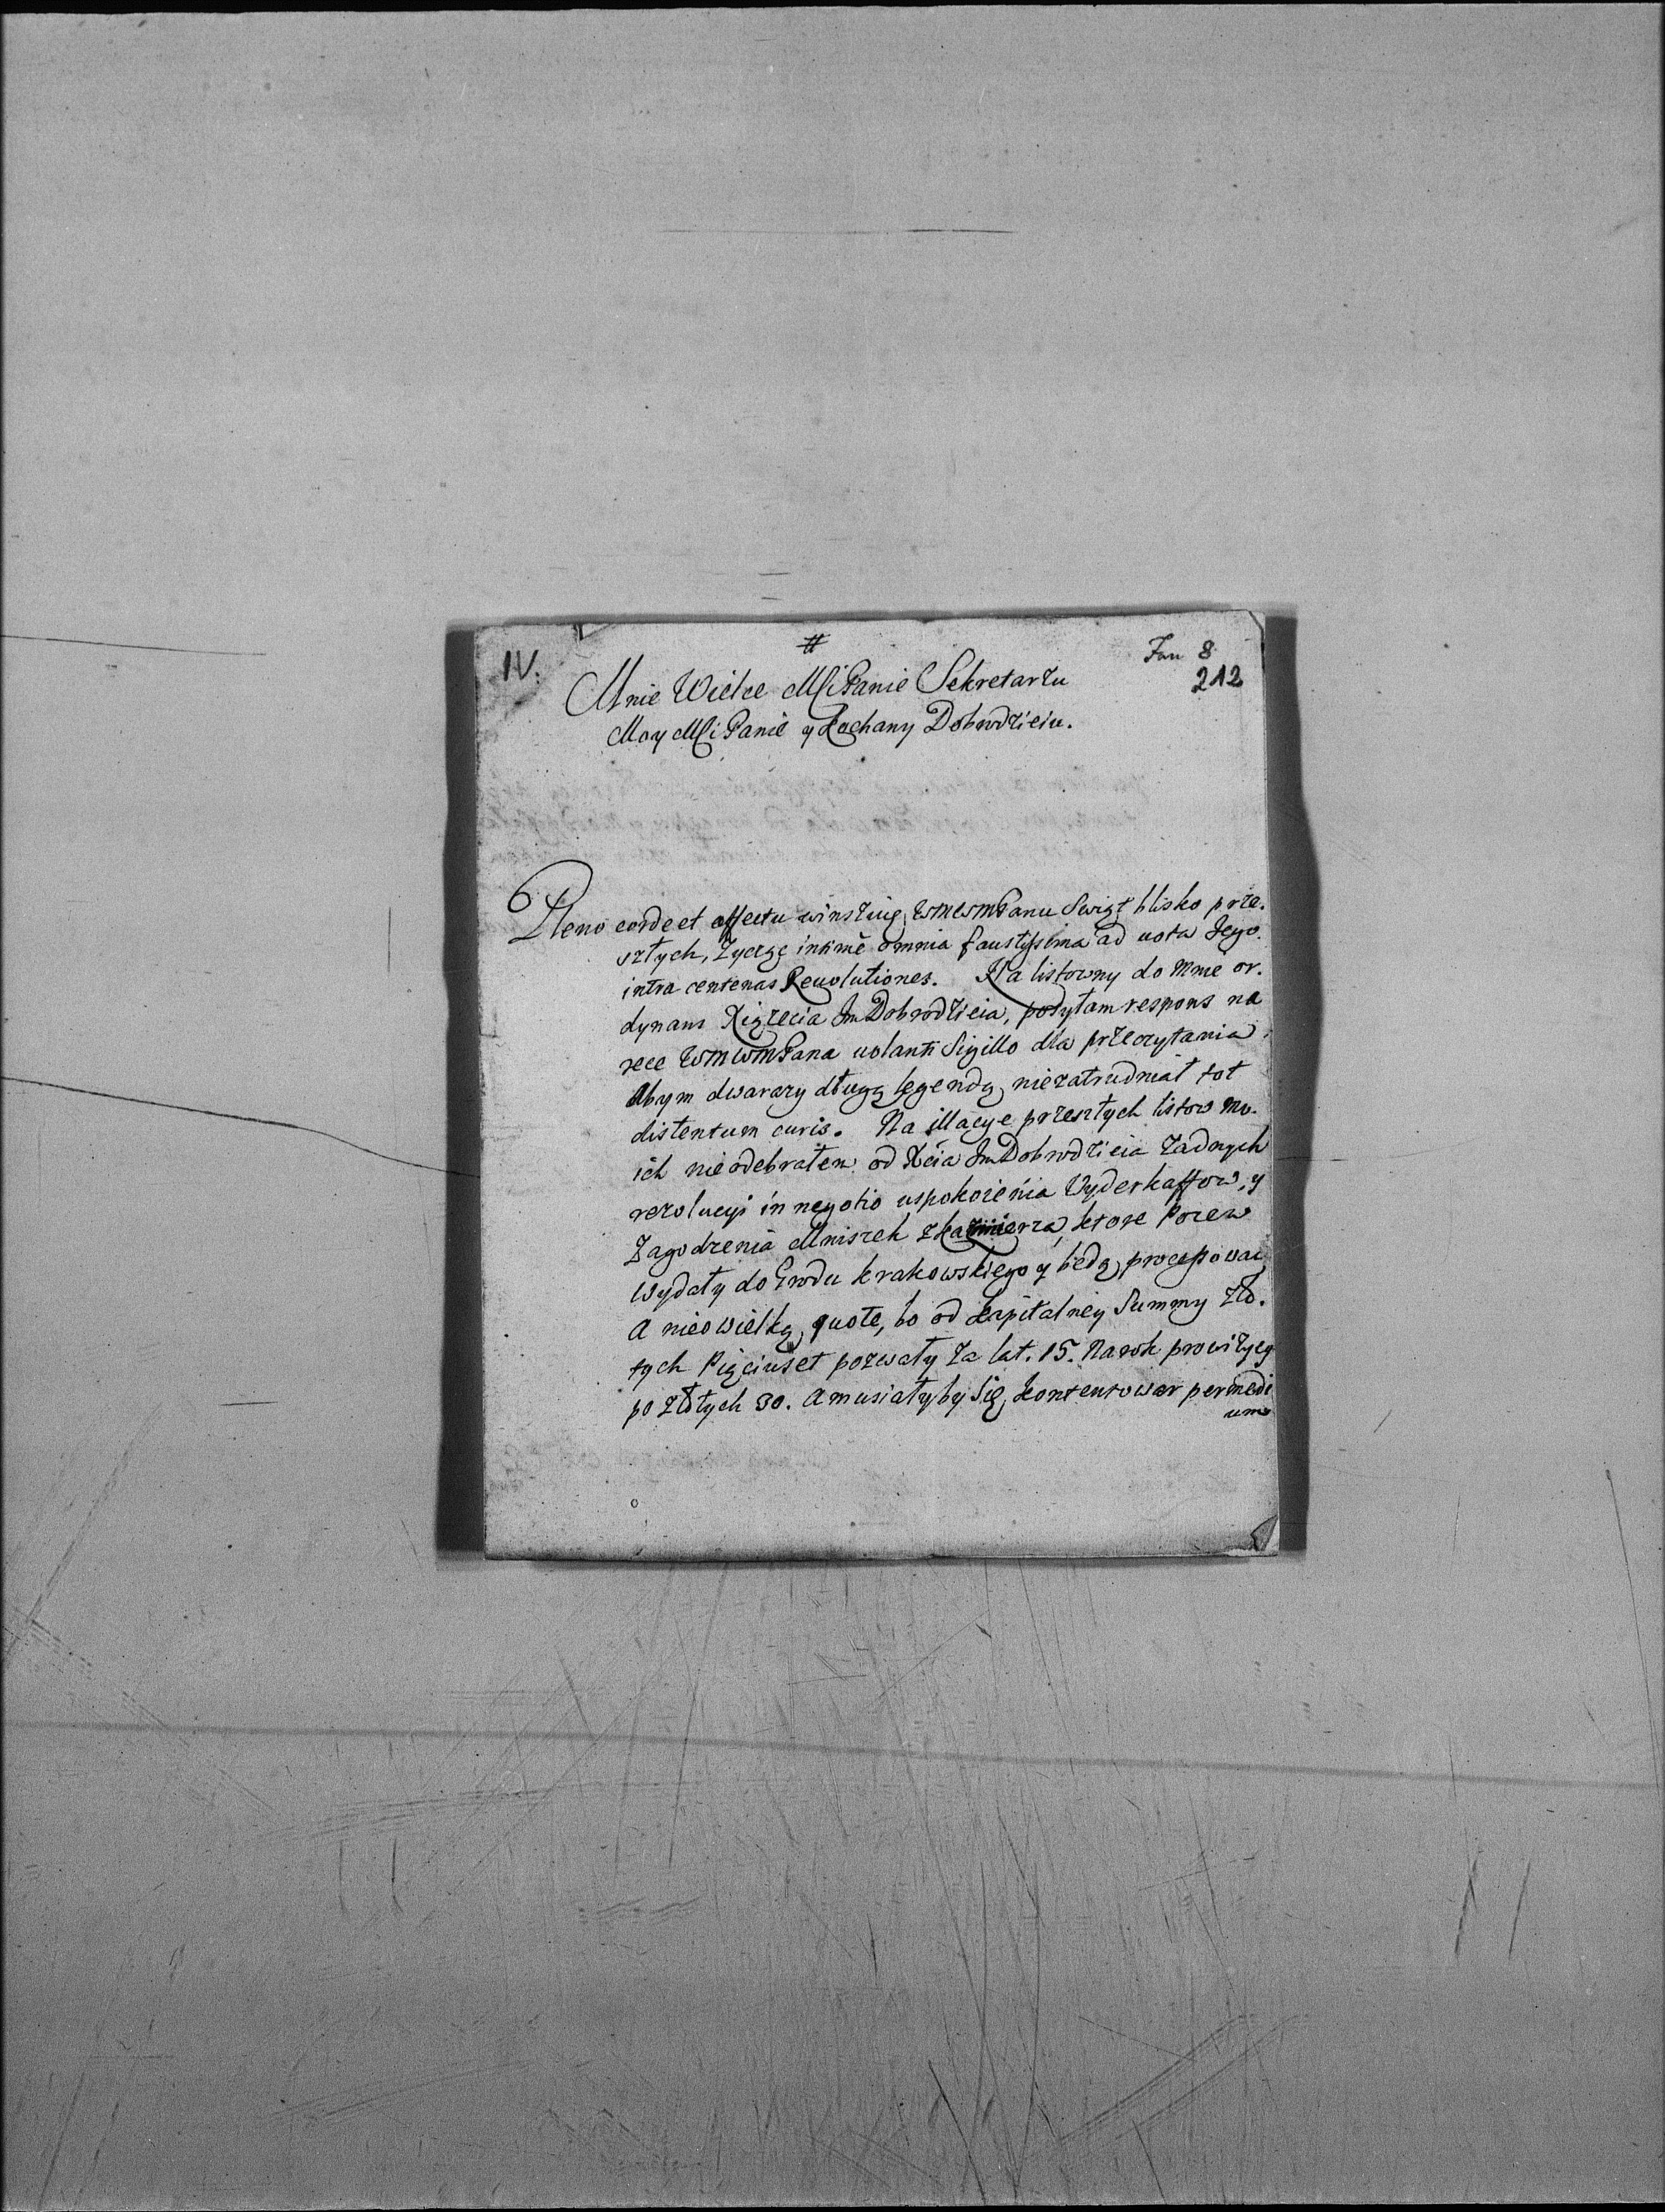 IV.
#
Jan 8
212
Mnie Wielce MſiPanie Sekretarzu
Moy Mſi Panie y Kochany Dobrodzieiu.
Pleno corde et affectu winszuię WMWMPanu Swiąt blisko prze-
szłych, Zyczę intimè omnia faustissima ad uota Jego
intra centenas Reuolutiones. Na listowny do Mnie or-
dynans Xiązecia Jm Dobrodzieia, posyłam respons na
ręce WMWMPana uolanti Sigillo dla przeczytania,
Abym dwarazy długą legendą niezatrudniał tot
distentum curis. Na illacye przeszłych listow mo-
ich nieodebrałem od Xcia Jm Dobrodzieia Zadnych
rezolucyi in negotio uspokoienia Wyderkaffow, y
Zagodzenia Mniszek z kazmierza, ktore Pozew
wydały do Grodu krakowskiego y będą processowac
A nieowielką quotę, bo od kapitalney Summy Zło-
tych Pięciuset pozwały Za lat. 15. Na rok prowizyey
po Złotych 30. A musiałyby Się kontentowac per medi
um